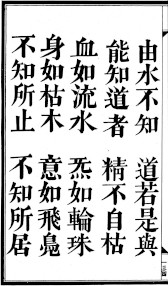 由水不知　道若是與
能知道者　精不自枯
血如流水　炁如輪珠
身如枯木　意如飛鳧
不知所止　不知所居